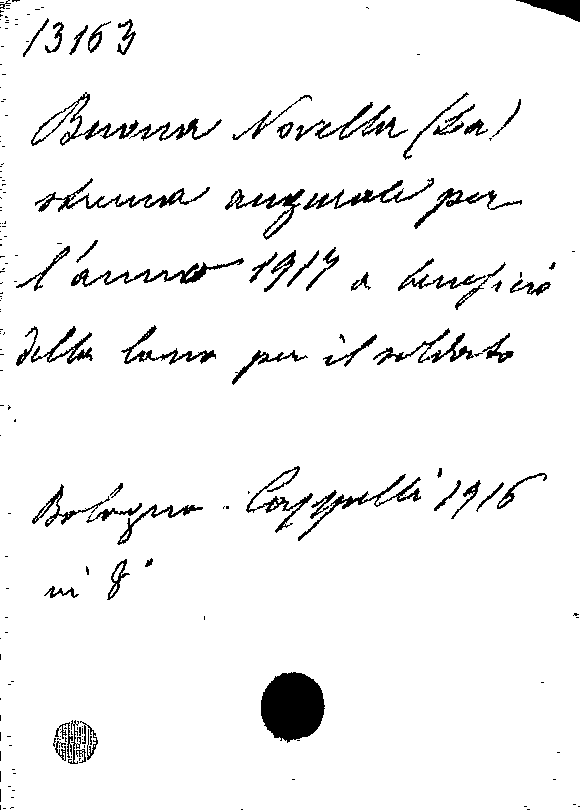 13163
Buona Novella (La)
strenna augurale per
l'anno 1917 a beneficio
della lana per il soldato
Bologna. Cappelli 1916
in 8°